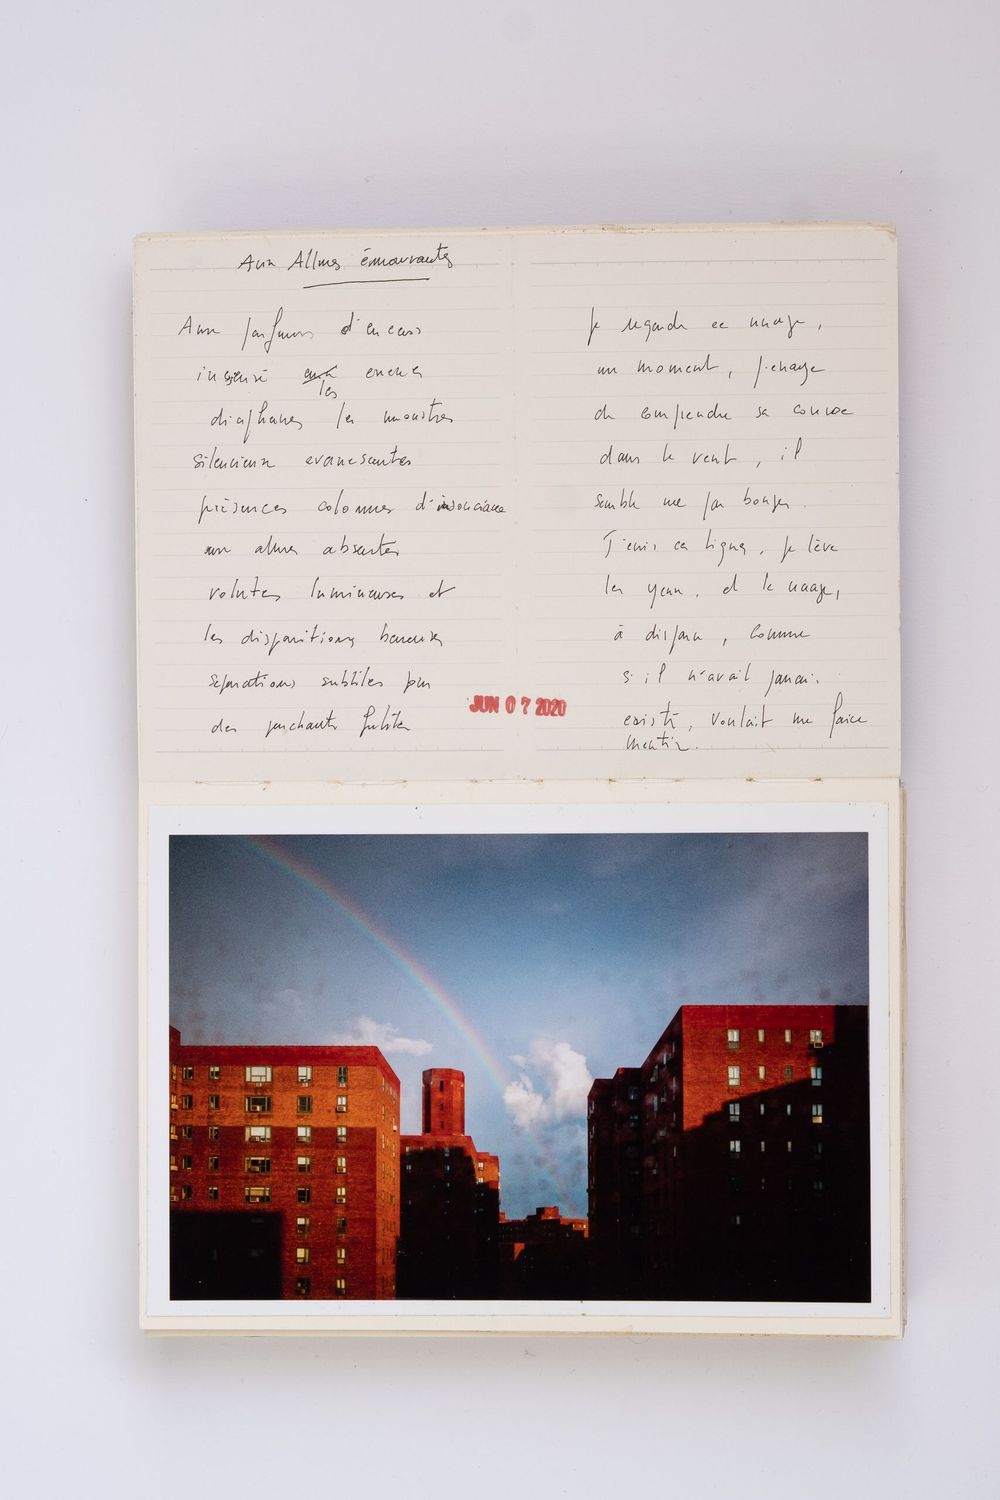 Aux Allures émouvantes
Aux parfums d'encens
insensé les encres
diaphanes les monstres
silencieux evanescentes
présences colonnes d'insouciance
aux allures absentes
volutes lumineuses et
les disparitions heureuses
séparations subtiles par
des penchants futiles
Je regarde ce nuage,
un moment, j'essaye
de comprendre sa course
dans le vent, il
semble ne pas bouger.
J'écris ces lignes, je lève
les yeux, et le nuage,
à disparu, comme
s'il n'avait jamais
existé, voulait me faire
mentir.
JUN 07 2020